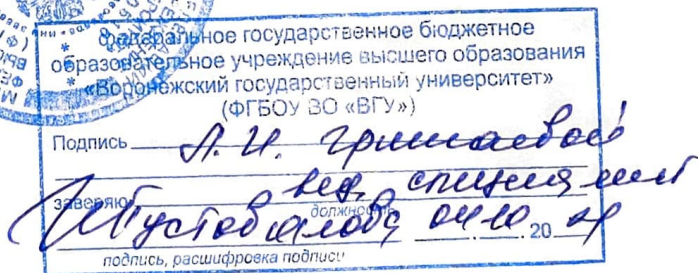 федеральное государственное бюджетное
образовательное учреждение высшего образования
«Воронежский государственный университет»
(ФГБОУ ВО «ВГУ»)
Подпись Л.И. Гришаевой
заверяю вед. специалист
должность
04.10 20
подпись, расшифровка подписи